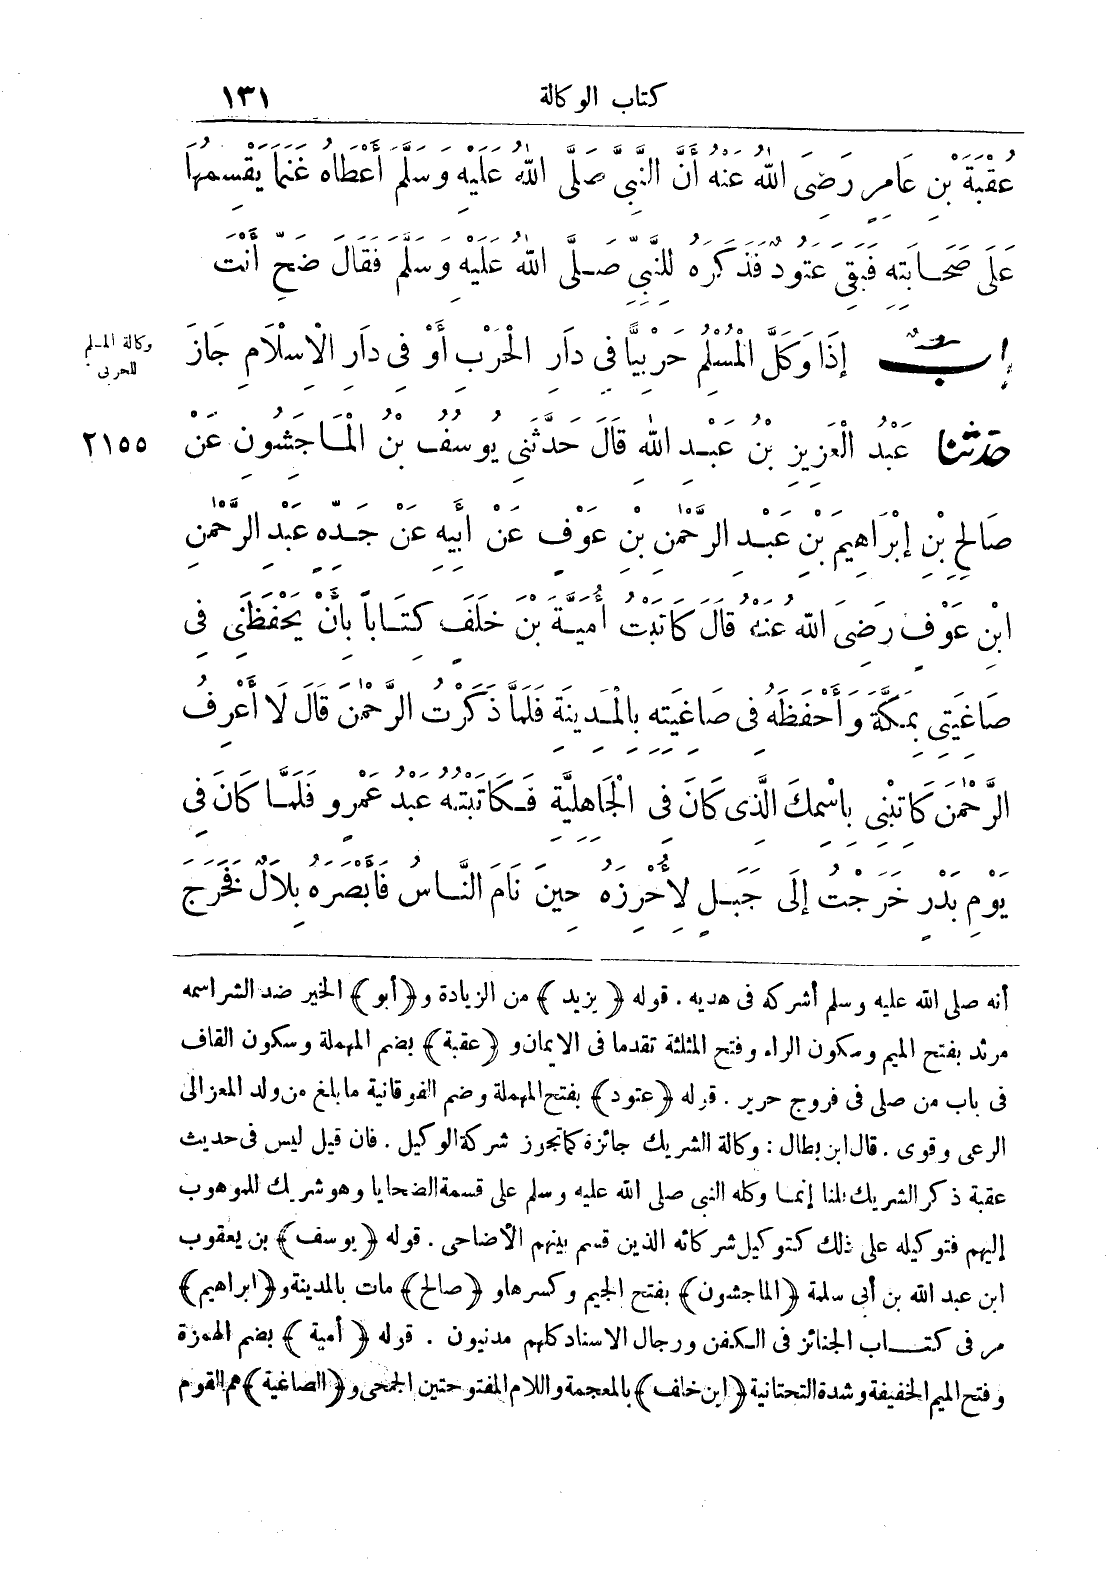 كتاب الوكالة ١٣١
عُقْبَةَ بْنِ عَامِرٍ رَضِىَ اللهُ عَنْهُ أَنَّ النَّبِىَّ صَلَّى اللهُ عَلَيْهِ وَسَلَّمَ أَعْطَاهُ غَنَمًا يَقْسِمُهَا
عَلَى صَحَابَتِهِ فَبَقِىَ عَتُودٌ فَذَكَرَهُ لِلنَّبِىِّ صَلَّى اللهُ عَلَيْهِ وَسَلَّمَ فَقَالَ ضَحِّ أَنْتَ
بابٌ إِذَا وَكَّلَ الْمُسْلِمُ حَرْبِيًّا فِى دَارِ الْحَرْبِ أَوْ فِى دَارِ الْإِسْلَامِ جَازَ
وكالة المسلم
للحربى
حدثنا عَبْدُ الْعَزِيزِ بْنُ عَبْدِ اللهِ قَالَ حَدَّثَنِى يُوسُفُ بْنُ الْمَاجِشُونِ عَنْ
٢١٥٥
صَالِحِ بْنِ إِبْرَاهِيمَ بْنِ عَبْدِ الرَّحْمٰنِ بْنِ عَوْفٍ عَنْ أَبِيهِ عَنْ جَدِّهِ عَبْدِ الرَّحْمٰنِ
ابْنِ عَوْفٍ رَضِىَ اللهُ عَنْهُ قَالَ كَاتَبْتُ أُمَيَّةَ بْنَ خَلَفٍ كِتَابًا بِأَنْ يَحْفَظَنِى فِى
صَاغِيَتِى بِمَكَّةَ وَأَحْفَظَهُ فِى صَاغِيَتِهِ بِالْمَدِينَةِ فَلَمَّا ذَكَرْتُ الرَّحْمٰنَ قَالَ لَا أَعْرِفُ
الرَّحْمٰنَ كَاتِبْنِى بِاسْمِكَ الَّذِى كَانَ فِى الْجَاهِلِيَّةِ فَكَاتَبْتُهُ عَبْدُ عَمْرٍو فَلَمَّا كَانَ فِى
يَوْمِ بَدْرٍ خَرَجْتُ إِلَى جَبَلٍ لِأُحْرِزَهُ حِينَ نَامَ النَّاسُ فَأَبْصَرَهُ بِلَالٌ فَخَرَجَ
أنه صلى الله عليه وسلم أشركه فى هديه . قوله ﴿يزيد﴾ من الزيادة و﴿أبو﴾ الخير ضد الشر اسمه
مرثد بفتح الميم وسكون الراء وفتح المثلثة تقدما فى الايمان و ﴿عقبة﴾ بضم المهملة وسكون القاف
فى باب من صلى فى فروج حرير . قوله ﴿عتود﴾ بفتح المهملة وضم الفوقانية ما بلغ من ولد المعز الى
الرعى وقوى . قال ابن بطال : وكالة الشريك جائزة كما تجوز شركة الوكيل . فان قيل ليس فى حديث
عقبة ذكر الشريك قلنا إنما وكله النبى صلى الله عليه وسلم على قسمة الضحايا وهو شريك للموهوب
إليهم فتوكيله على ذلك كتوكيل شركائه الذين قسم بينهم الأضاحى . قوله ﴿يوسف﴾ بن يعقوب
ابن عبد الله بن أبى سلمة ﴿الماجشون﴾ بفتح الجيم وكسرها و ﴿صالح﴾ مات بالمدينة و﴿ابراهيم﴾
مر فى كتاب الجنائز فى الكفن ورجال الاسناد كلهم مدنيون . قوله ﴿أمية﴾ بضم الهمزة
وفتح الميم الخفيفة وشدة التحتانية ﴿ابن خلف﴾ بالمعجمة واللام المفتوحتين الجمحى و﴿الصاغية﴾ هم القوم